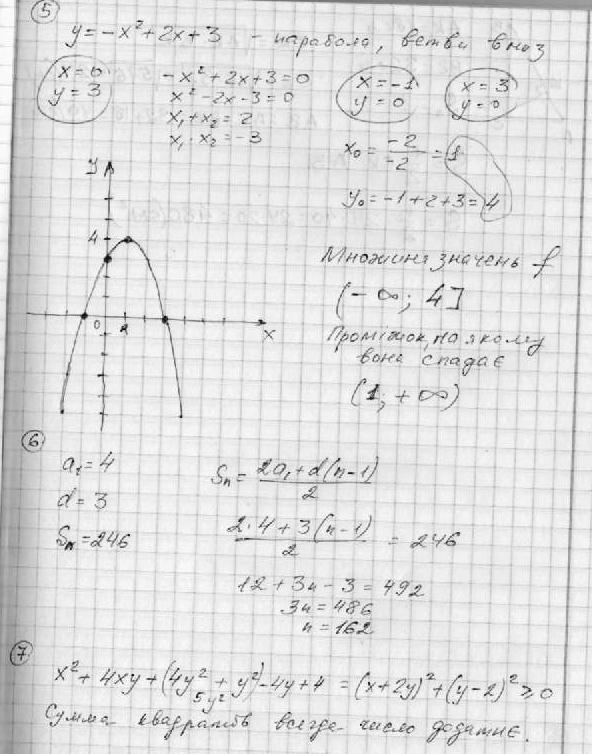 5
y = -x² + 2x + 3 - парабола, ветви вниз
x = 0
y = 3
-x² + 2x + 3 = 0
x² - 2x - 3 = 0
x₁ + x₂ = 2
x₁ · x₂ = -3
x = -1
y = 0
x = 3
y = 0
x₀ = -2/-2 = 1
y₀ = -1 + 2 + 3 = 4
y
4
0
x
Множина значень f
(-∞; 4]
Проміжок, на якому
вона спадає
(1; +∞)
6
a₁ = 4
d = 3
Sₙ = 246
Sₙ = 2a₁ + d(n-1)/2
2·4 + 3(n-1)/2 = 246
12 + 3n - 3 = 492
3n = 486
n = 162
7
x² + 4xy + (4y² + y²) - 4y + 4 = (x + 2y)² + (y - 2)² ≥ 0
5y²
Сумма квадратів всегда число додатнє.